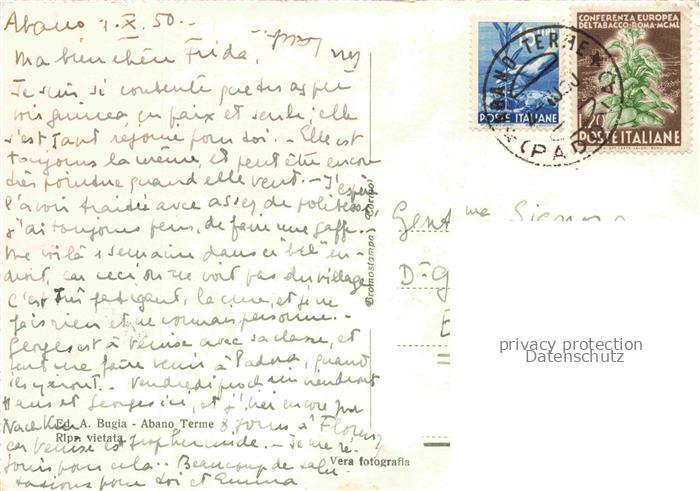 Abano 1.X.50.-
Ma bien chère Frida,
Je suis si contente que tu as pu
voir en paix et seule; elle
s'est tant rejouie pour toi. - Elle est
toujours la même, et peut être encore
très pointue quand elle veut. - J'espère
l'avoir traitée avec assez de politesse,
j'ai toujours peur de faire une gaffe.
Me voilà 1 semaine dans ce "bel" en-
droit, car ceci on ne voit pas du village
C'est très fatigant, la cure, et je ne
fais rien et ne connais personne. -
Georges est à Venise avec sa classe, et
veut me faire venir à Padova, quand
ils y iront. - Vendredi prochain viendront
Hans et Georges ici, et j'irai encore pour
Nachkur 8 jours à Florenz
car Venise est trop humide. - Je me ré-
jouis pour cela. - Beaucoup de salu-
tations pour toi et Emma
Ed. A. Bugia - Abano Terme
Ripr. vietata
Vera fotografia
Bromostampa
POSTE ITALIANE
CONFERENZA EUROPEA
DEL TABACCO-ROMA-MCML
L.20
POSTE ITALIANE
ABANO TERME
(PADOVA)
Gent.ma Signora
D. G
privacy protection
Datenschutz